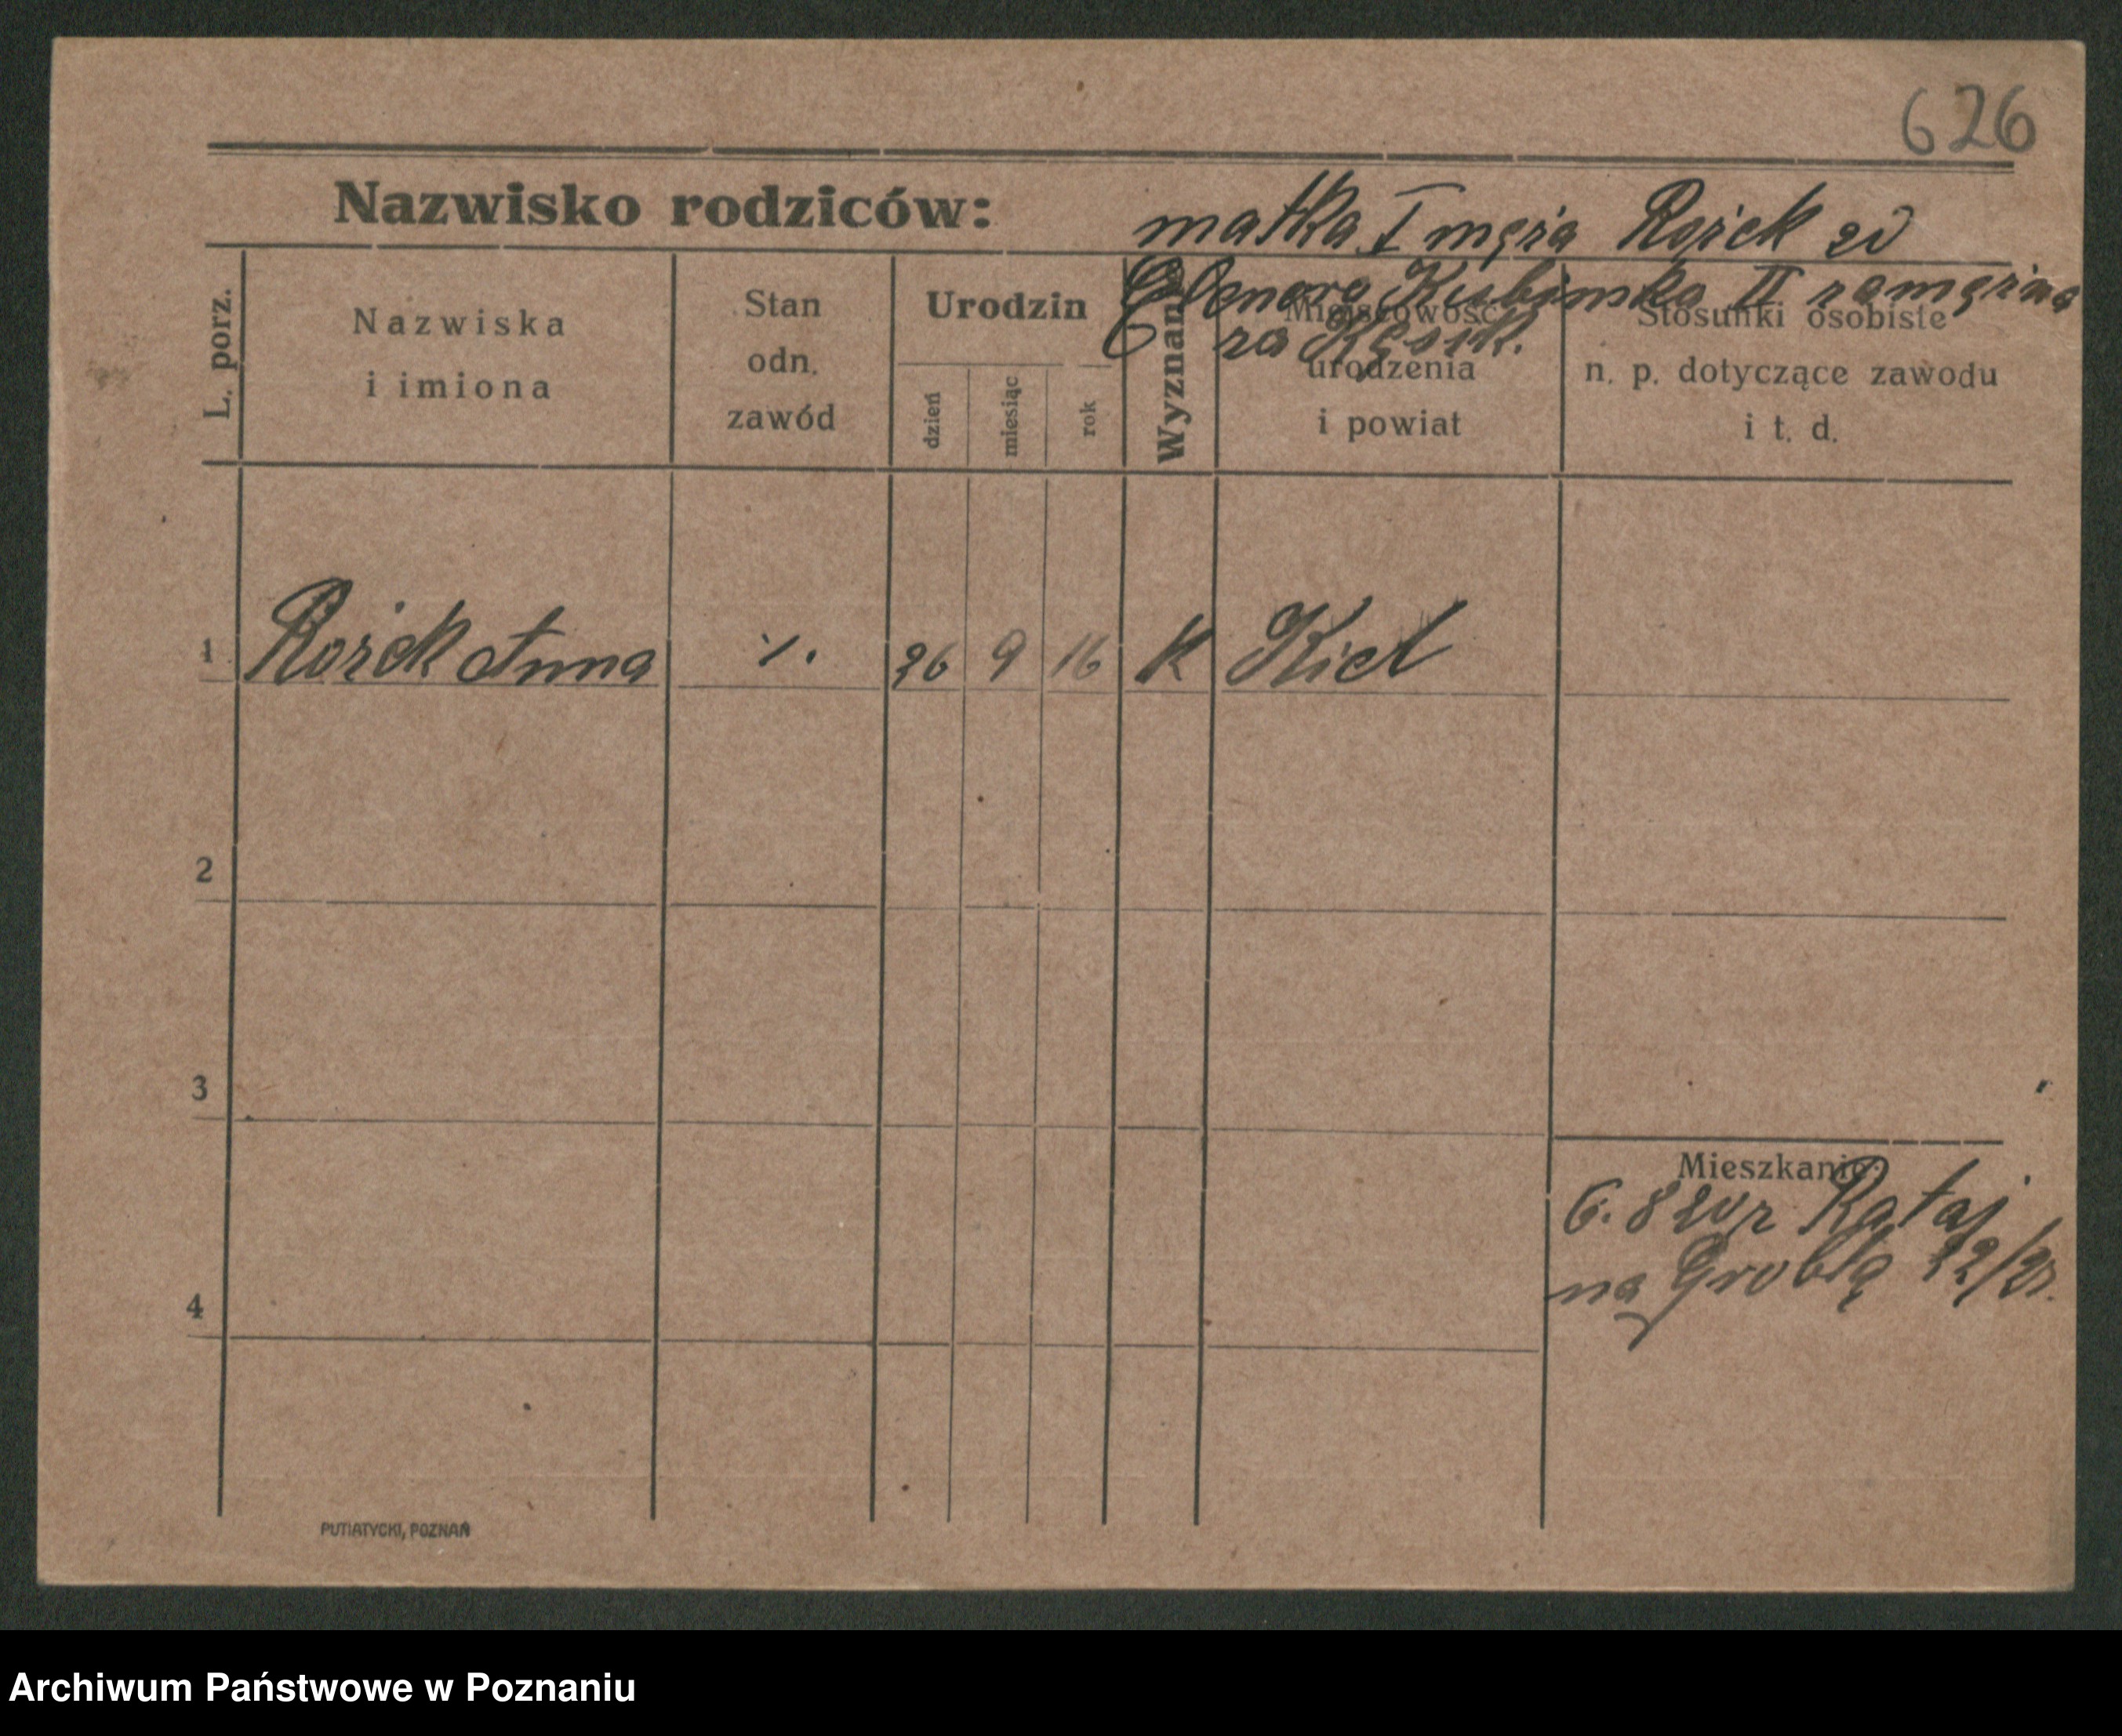 626
Nazwisko rodziców:
matka I męża Rożek zd
Elenora Kubimka II zamężna
za Kęsik.
L. porz.
Nazwiska
i imiona
Stan
odn.
zawód
Urodzin
dzień
miesiąc
rok
Wyznanie
Miejscowość
urodzenia
i powiat
Stosunki osobiste
n. p. dotyczące zawodu
i t. d.
1 Rożek Anna ٪. 26 9 16 K Kiel
2
3
4
Mieszkanie:
6. 8 Rataj
na Groblą 22/23.
PUTIATYCKI, POZNAŃ
Archiwum Państwowe w Poznaniu